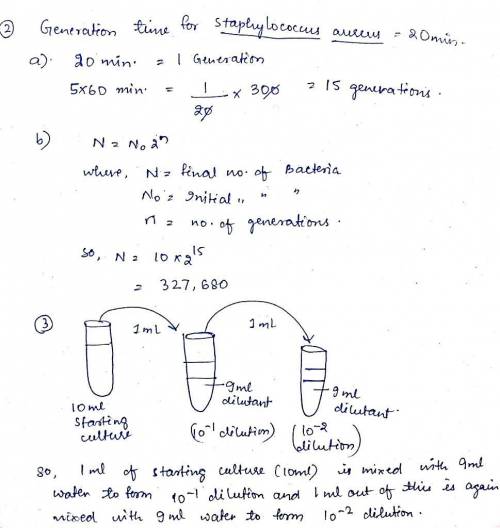 ② Generation time for Staphylococcus aureus = 20min.
a). 20 min. = 1 Generation
5x60 min. = 1/20 x 300 = 15 generations.
b) N = N₀ 2ⁿ
where, N = final no. of Bacteria
N₀ = Initial " " "
n = no. of generations.
so, N = 10 x 2¹⁵
= 327,680
③ 1mL 1mL
10ml starting culture
9ml dilutant
(10⁻¹ dilution)
9ml dilutant.
(10⁻² dilution)
So, 1ml of starting culture (10ml) is mixed with 9ml
water to form 10⁻¹ dilution and 1ml out of this is again
mixed with 9ml water to form 10⁻² dilution.